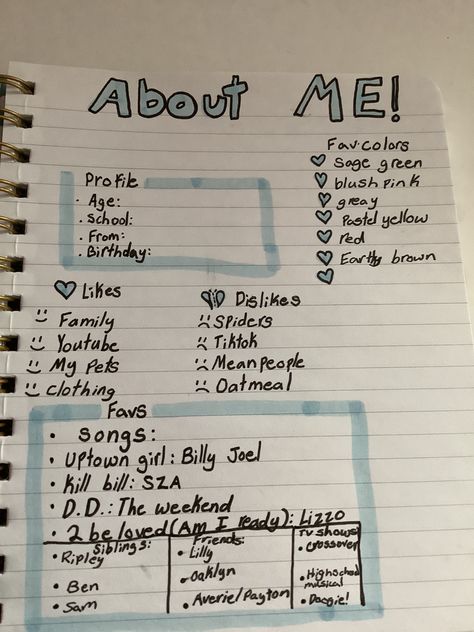 About ME!
Fav. colors
Sage green
blush pink
greay
Pastel yellow
Red
Earthy brown
Profile
· Age:
· School:
· From:
· Birthday:
Likes
Family
Youtube
My Pets
clothing
Dislikes
Spiders
Tiktok
Mean people
Oatmeal
Favs
• Songs:
• Uptown girl: Billy Joel
• Kill bill: SZA
• D.D.: The weekend
• 2 be loved (Am I ready): Lizzo
Siblings:
• Ripley
• Ben
• Sam
Friends:
• Lilly
• Oaklyn
• Averie/Payton
TV shows:
• Crossover
• Highschool
musical